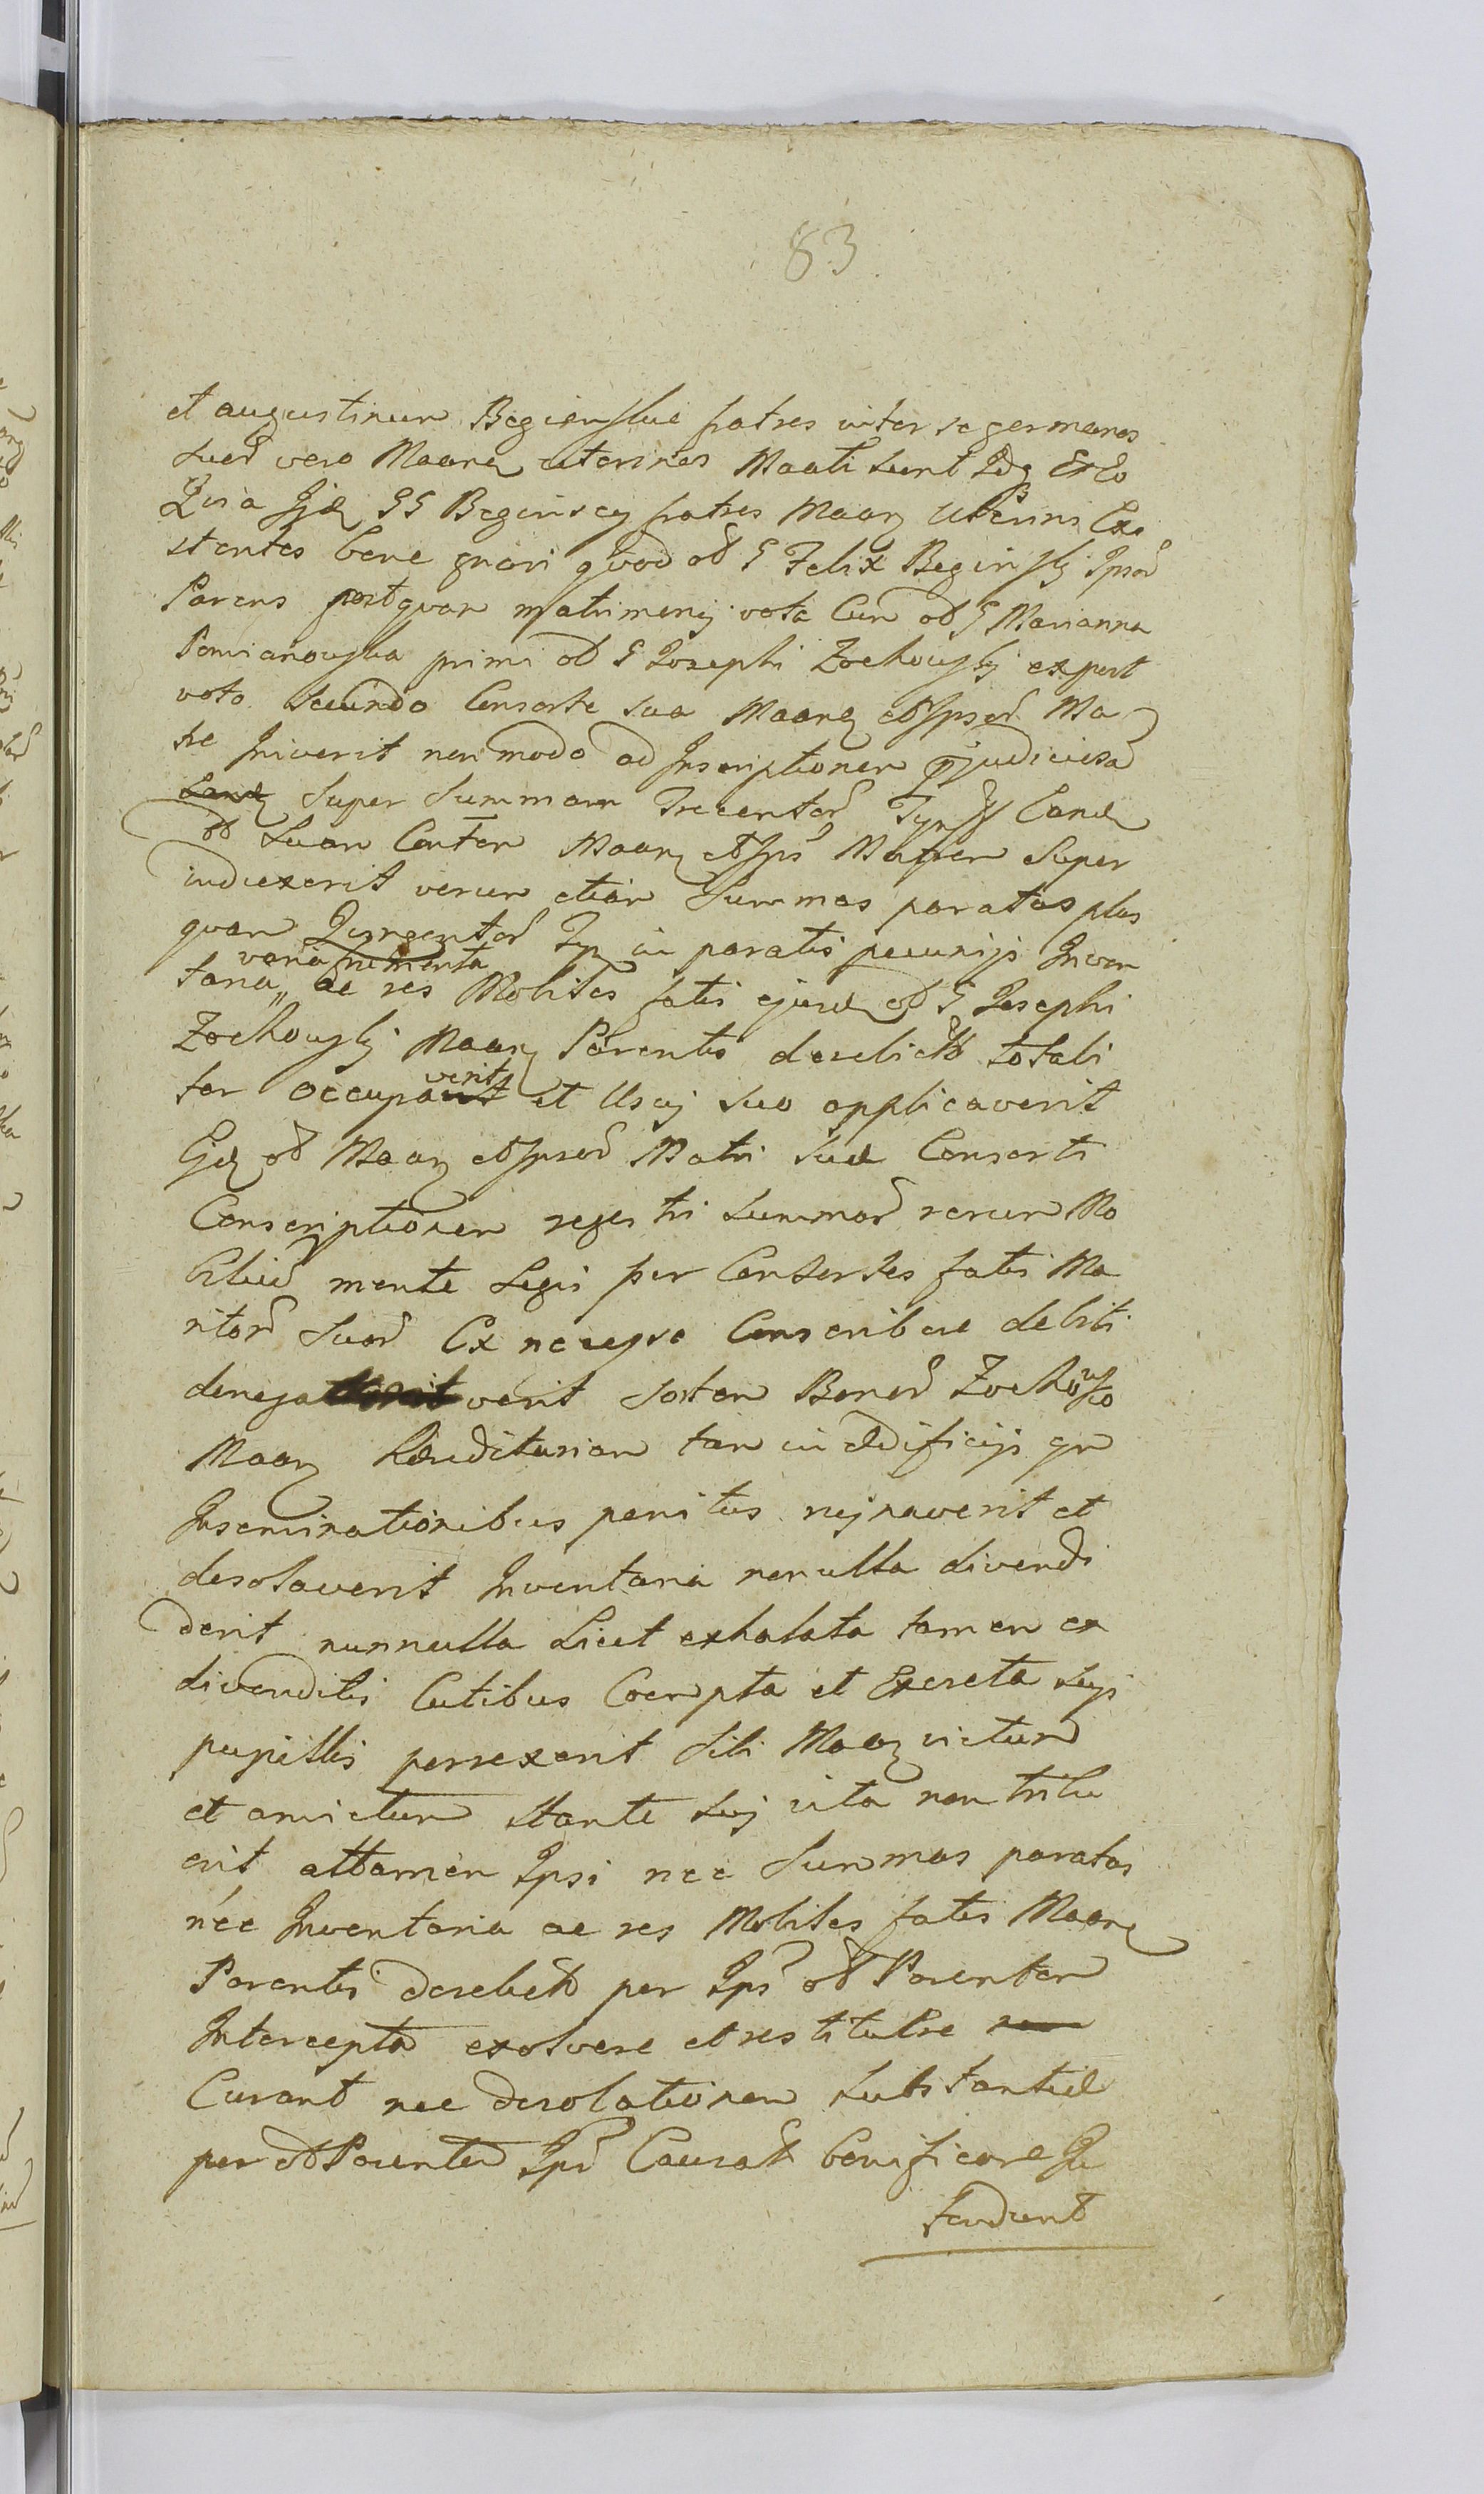 83
et augustinum Begienskie fratres inter se germanos
suos vero Maarq uterinos Maati sunt Idq Ex Eo
Quia Ijdq GG Begiriscy fratres Maarq Uterini Exi
stentes bene gnari quod od G Felix Begirskj Ipsor
Parens postquam matrimonij vota Cum od G Marianna
Pomianowska primi od G Josephi Zochowskj expost
voto secundo Consorte sua Maarq et Ipsor Ma
tre Iniverit non modo ad Inscriptionem
super Summam Trecentor Tynff Eand
od Suam Contem Maarq et Ips Matrem super
induxerit verum etiam Summas paratas plus
quam Quingentor Tyn in paratis pecunijs Inven
varia frumenta
taria,, ac res Mobiles fatis ejusd od G Josephi
Zochowskj Maarq Parentis derelict totali
verit
ter occupa et Usuj suo applicaverit
Ejdq od Maarq et Ipsor Matri suæ Consorti
Conscriptionem regestri summar rerum Mo
bilium mente Legis per Consortes fatis Ma
ritor suor Ex necessitate Conscribere debiti
denega verit sortem Bonor Zochowo
Maarq hæreditariam tam in ædificijs qm
Inseminationibus penitus rujnaverit et
desolaverit Inventaria nonulla divendi
derit nunnulla Licet exhalata tamen ex
divenditis Cutibus Coempta et Excreta suijs
pupillis perrexerit sibi Maarq victum
et amictum stante suj vita non tribu
erit attamen Ipsi nec Summas paratas
nec Inventaria ac res Mobiles fatis Maarq
Parentis derelict per Ips od Parentem
Intercepta exolvere et restituere
Curant nec desolationem substantiæ
per od Parentem Ips Causat bonificare In
tendunt